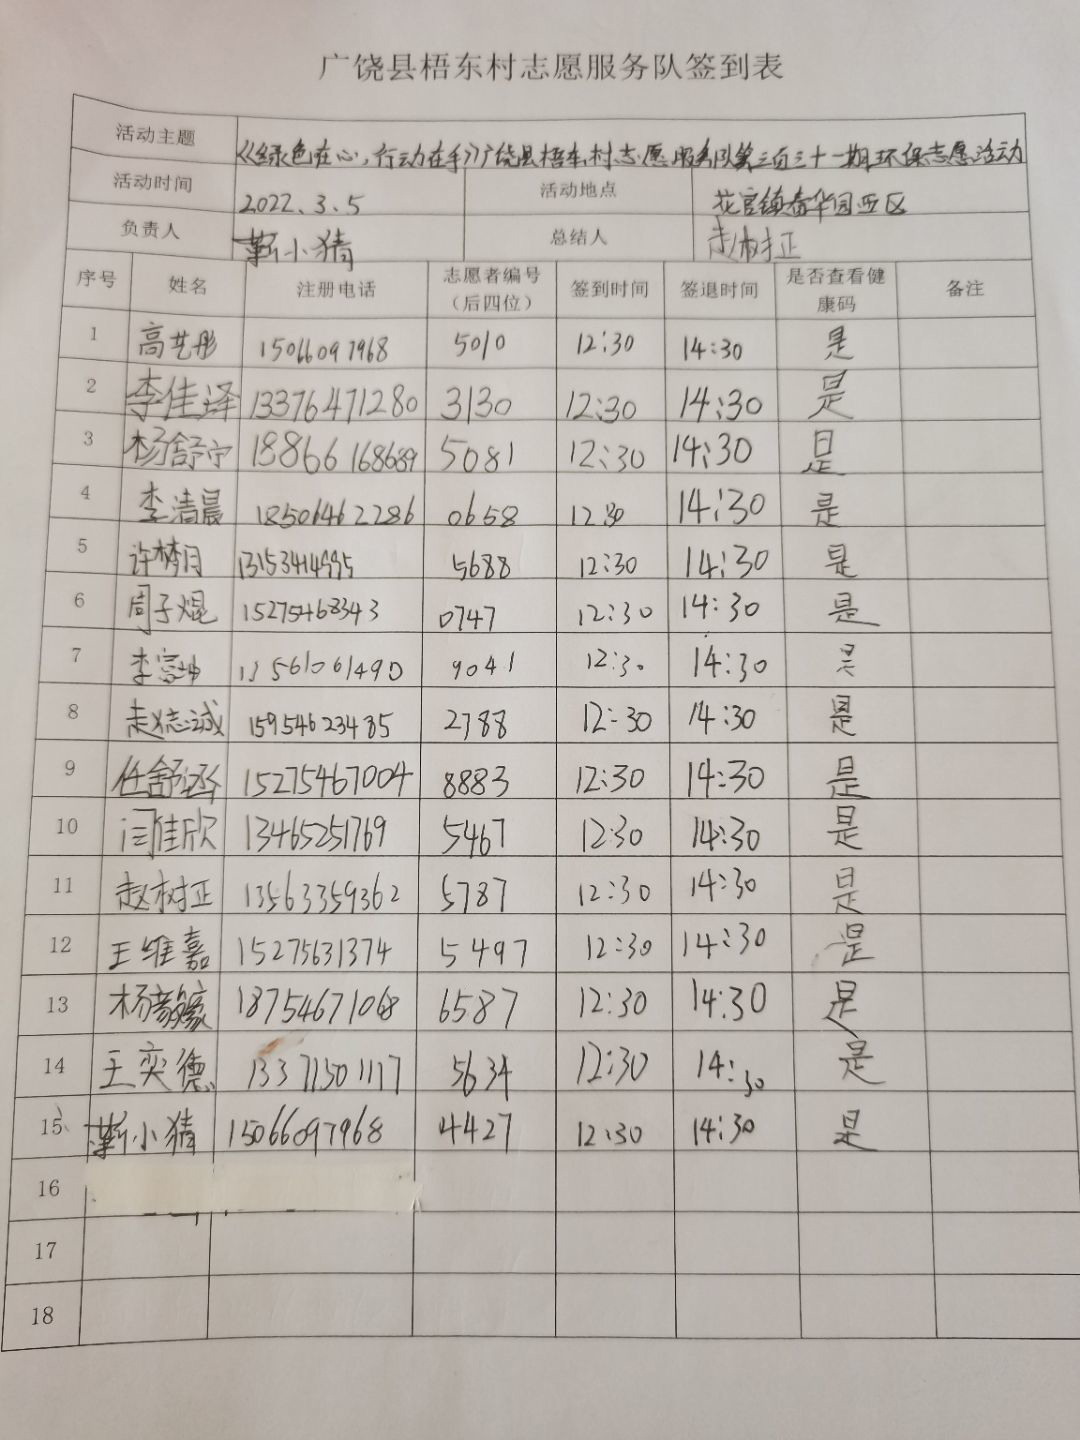 广饶县梧东村志愿服务队签到表
活动主题 《绿色在心，行动在手》广饶县梧东村志愿服务队第三百三十一期环保志愿活动
活动时间 2022.3.5 活动地点 花官镇春华园西区
负责人 靳小猜 总结人 赵树正
序号 姓名 注册电话 志愿者编号（后四位） 签到时间 签退时间 是否查看健康码 备注
1 高艺彤 15066097968 5010 12:30 14:30 是
2 李佳泽 13376471280 3130 12:30 14:30 是
3 杨舒宁 18866168689 5081 12:30 14:30 是
4 李清晨 18506462286 0658 12:30 14:30 是
5 许梦月 5688 12:30 14:30 是
6 周子焜 15275468343 0747 12:30 14:30 是
7 李富坤 13561061490 9041 12:30 14:30 是
8 赵志诚 15954623485 2788 12:30 14:30 是
9 任舒涵 15275467004 8883 12:30 14:30 是
10 闫佳欣 13465251769 5467 12:30 14:30 是
11 赵树正 13563359362 5787 12:30 14:30 是
12 王维嘉 15275631374 5497 12:30 14:30 是
13 杨 18754671068 6587 12:30 14:30 是
14 王奕德 13371501177 5634 12:30 14:30 是
15、 靳小猜 15066097968 4427 12:30 14:30 是
16
17
18